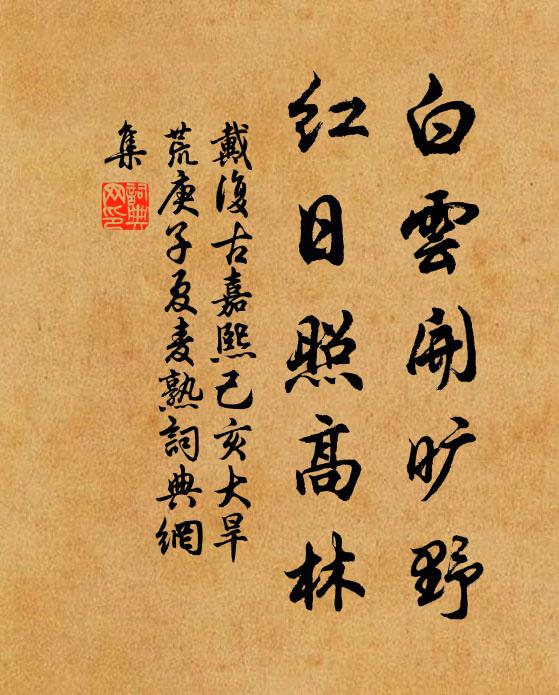 白雲開旷野
红日照高林
戴復古嘉熙己亥大旱
荒庚子夏麦熟詞典網
集
詞典网印